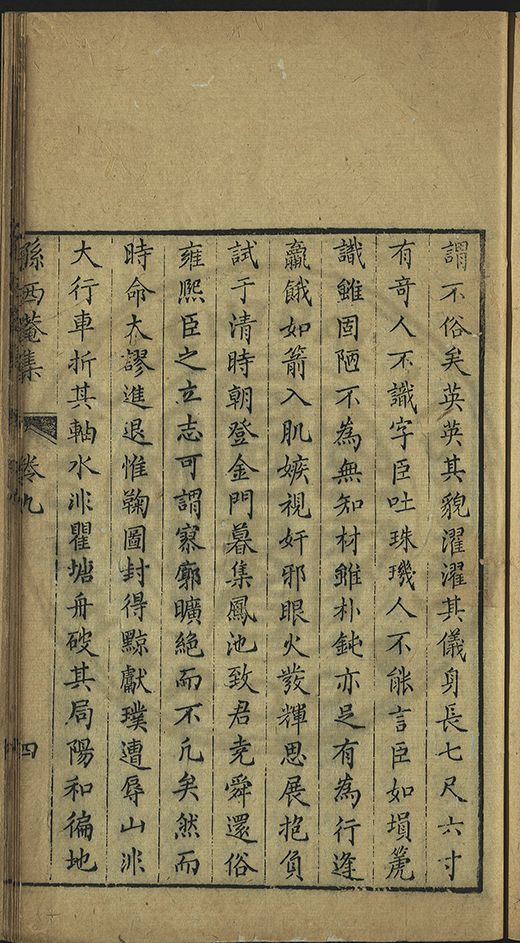 謂不俗矣英英其貌濯濯其儀身長七尺六寸
有奇人不識字臣吐珠璣人不能言臣如塤篪
識雖固陋不為無知材雖朴鈍亦足有為行逢
羸餓如箭入肌嫉視奸邪眼火發輝思展抱負
試于清時朝登金門暮集鳳池致君堯舜還俗
雍熙臣之立志可謂寥廓曠絕而不凡矣然而
時命大謬進退惟鞠圖封得黥獻璞遭辱山非
大行車折其軸水非瞿塘舟破其局陽和徧地
孫西菴集 卷九 四